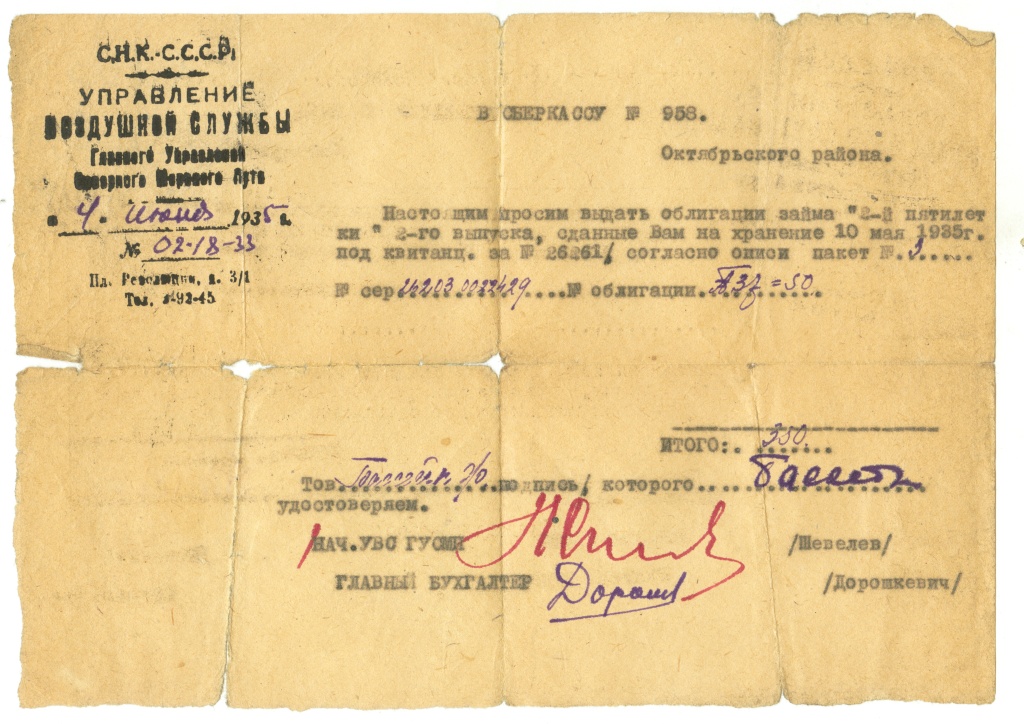 С.Н.К.-С.С.С.Р.
УПРАВЛЕНИЕ
ВОЗДУШНОЙ СЛУЖБЫ
Главного Управления
Северного Морского Пути
" 4. июня 1935 г.
№ 02-18-33
Пл. Революции, д. 3/1
Тел. 2-92-45
В СБЕРКАССУ № 958.
Октябрьского района.
Настоящим просим выдать облигации займа "2-й пятилет
ки " 2-го выпуска, сданные Вам на хранение 10 мая 1935г.
под квитанц. за № 26261/ согласно описи пакет №.3.....
№ сер. 26203 0022429....№ облигации.
=50.
ИТОГО:. 350....
Тов. подпись/ которого....Бассейн
удостоверяем.
НАЧ.УВС ГУСМП /Шевелев/
ГЛАВНЫЙ БУХГАЛТЕР Дорош /Дорошкевич/